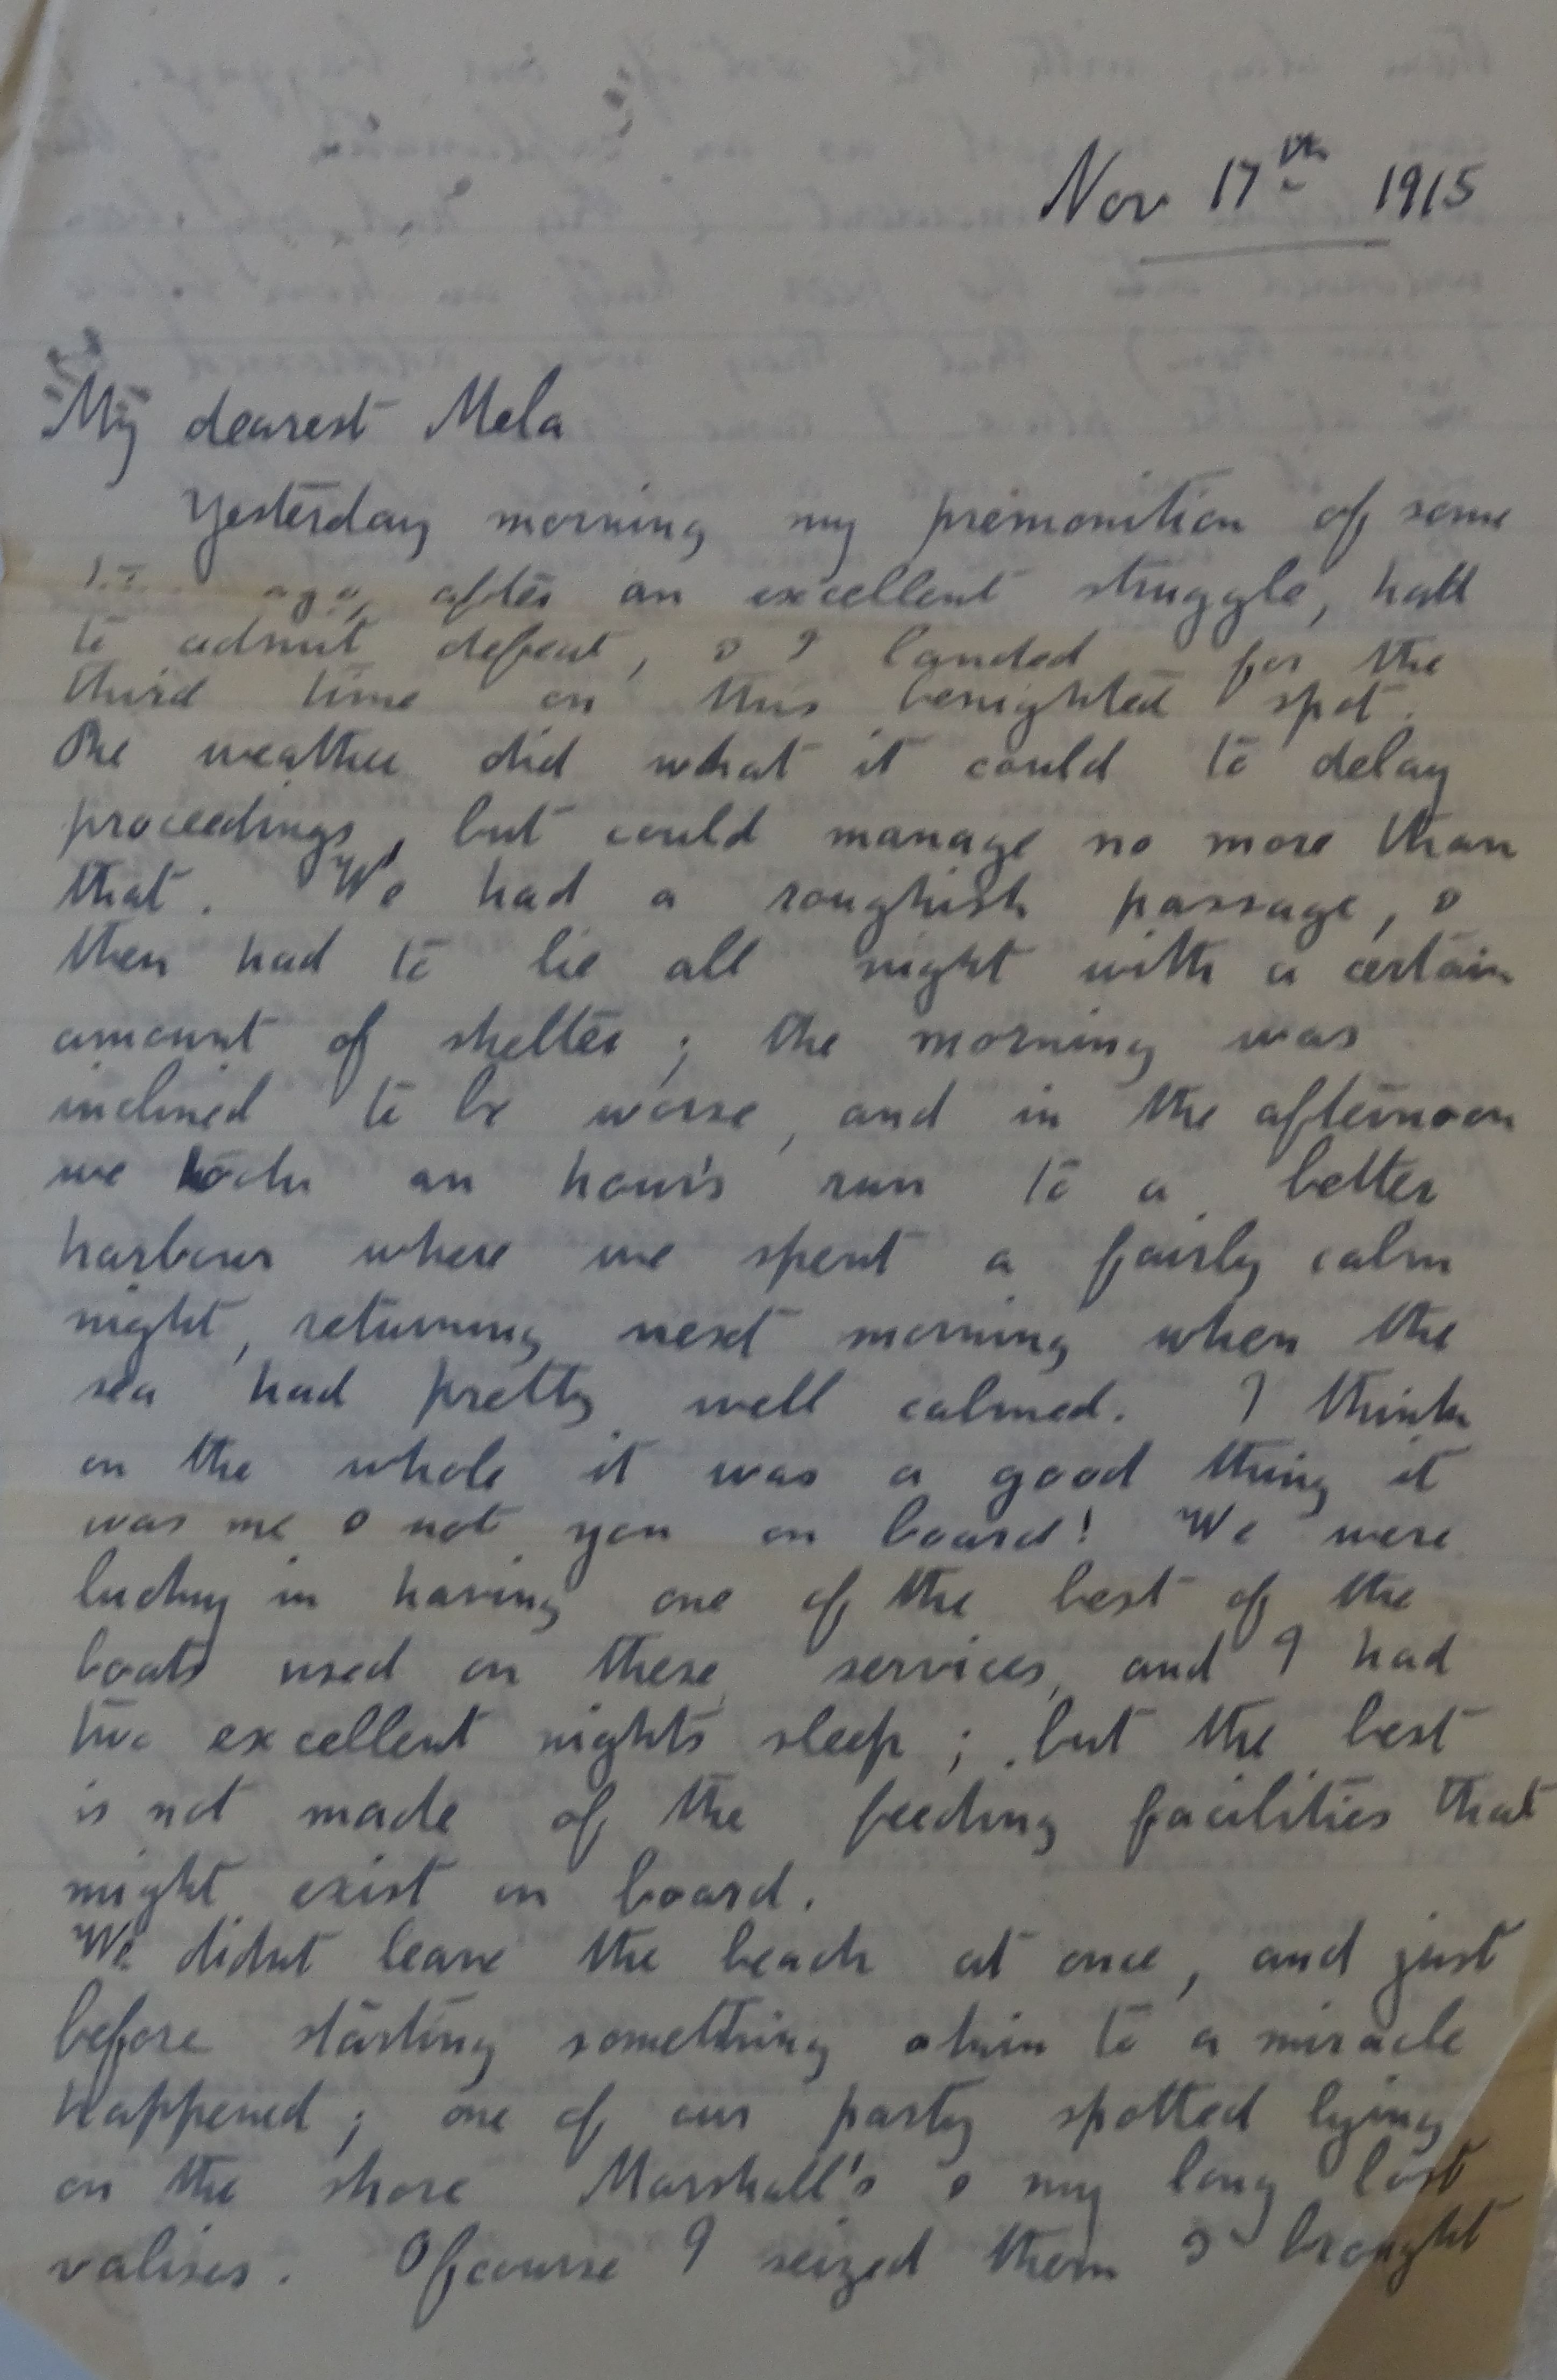 Nov 17th 1915
My dearest Mela
Yesterday morning my premonition of some
ago, after an excellent struggle, had
to admit defeat, & I landed for the
third time on this benighted spot.
The weather did what it could to delay
proceedings, but could manage no more than
that. We had a roughish passage, &
then had to lie all night with a certain
amount of shelter; the morning was
inclined to be worse, and in the afternoon
we took an hour's run to a better
harbour where we spent a fairly calm
night, returning next morning when the
sea had pretty well calmed. I think
on the whole it was a good thing it
was me & not you on board! We were
lucky in having one of the best of the
boats used on these services, and I had
two excellent nights sleep; but the best
is not made of the feeding facilities that
might exist on board.
We didnt leave the beach at once, and just
before starting something akin to a miracle
happened; one of our party spotted lying
on the shore Marshall's & my long lost
valises. Ofcourse I seized them & brought